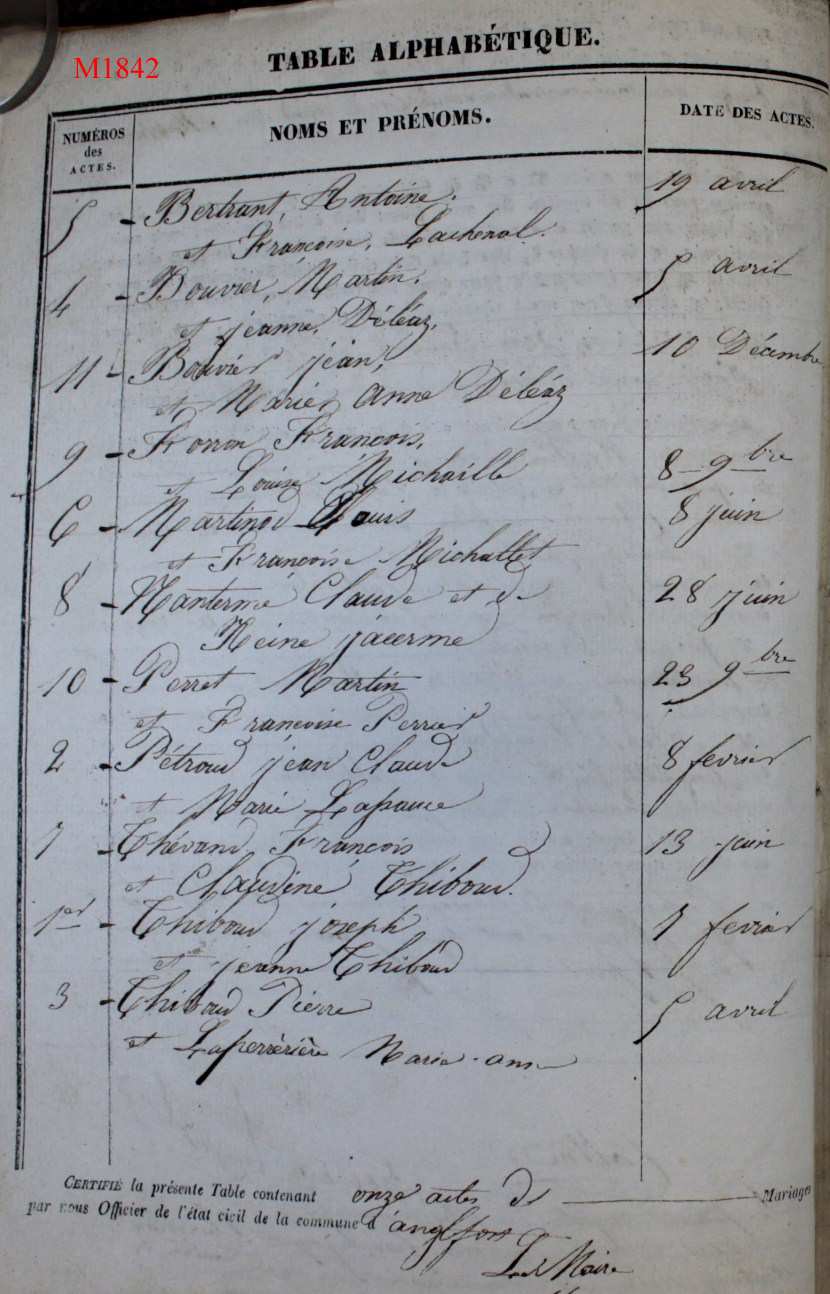 M1842
TABLE ALPHABÉTIQUE.
NUMÉROS
des
ACTES.
NOMS ET PRÉNOMS.
DATE DES ACTES.
5 - Bertrant, Antoine. 19 avril
et Françoise, Lachenal.
4 - Bouvier, Martin. 5 avril
et jeanne, Déléaz,
11 - Bouvier jean, 10 Décembre
et Marie Anne Déléaz
9 - François, 8 - 9bre
et Louise Michaille
6 - Martinod Louis 8 juin
et Françoise Michallet
8 - Nantermé Claude et de 28 juin
Reine jacerme
10 - Perret Martin 23 9bre
et Françoise Perrier
2 - Pétroud jean Claude 8 fevrier
et Marie
7 - Thévand, François 13 juin
et Claudine Thiboud.
1er - Thiboud joseph 7 fevrier
et jeanne Thiboud
3 - Thiboud Pierre 5 avril
et Laperrérière Marie-ane
CERTIFIÉ la présente Table contenant onze actes de Mariages
par nous Officier de l'état civil de la commune d'anglefort
Le Maire